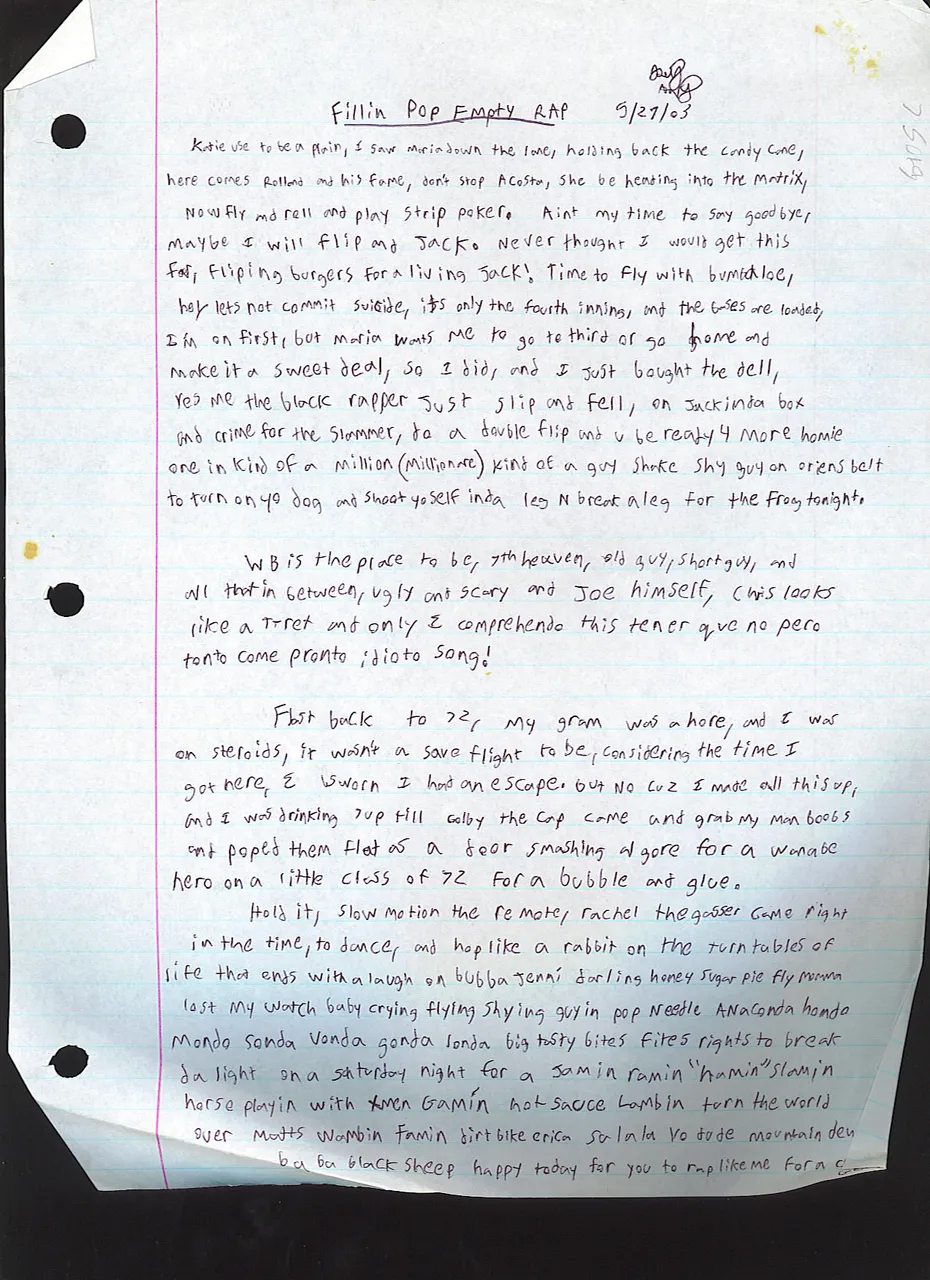 Fillin Pop Empty RAP
9/27/03
Katie use to be a plain, I saw maria down the lane, holding back the candy cane,
here comes Rolland and his fame, don't stop Acosta, she be heading into the matrix,
Now fly and rell and play strip poker. Aint my time to say goodbye,
maybe I will flip and Jack. Never thought I would get this
far, fliping burgers for a living Jack! Time to fly with
hey lets not commit suicide, its only the fourth inning, and the bases are loaded,
I'm on first, but maria wants me to go to third or go home and
make it a sweet deal, so I did, and I just bought the dell,
yes me the black rapper just slip and fell, on Jackinda box
and crime for the slammer, do a double flip and u be ready 4 more homie
one in kind of a million (millionare) kind of a guy shake shy guy on oriens belt
to turn on yo dog and shoot yoself inda leg N break a leg for the frog tonight.
WB is the place to be, 7th heaven, old guy, short guy, and
all that in between, ugly and scary and Joe himself, Chris looks
like a T-ret and only I comprehendo this tener que no pero
tonto come pronto idioto song!
Flast back to 72, my gram was a hore, and I was
on steroids, it wasn't a save flight to be, considering the time I
got here, I sworn I had an escape. but No cuz I made all this up,
and I was drinking 7up till colby the cap came and grab my man boobs
and poped them flat as a door smashing al gore for a wanabe
hero on a little class of 72 for a bubble and glue.
Hold it, slow motion the remote, rachel the gasser came right
in the time, to dance, and hop like a rabbit on the turntables of
life that ends with a laugh on bubba Jenni darling honey sugar pie fly momma
lost my watch baby crying flying shying guyin pop Needle ANaconda hondo
mondo sonda vonda gonda londa big tasty bites fites rights to break
da light on a saturday night for a Jamin ramin "hamin" slamin
horse playin with xmen Gamin hot sauce Lambin turn the world
over matts wambin famin dirt bike erica sa la la Yo dude mountain dew
ba ba black sheep happy today for you to rap like me for a